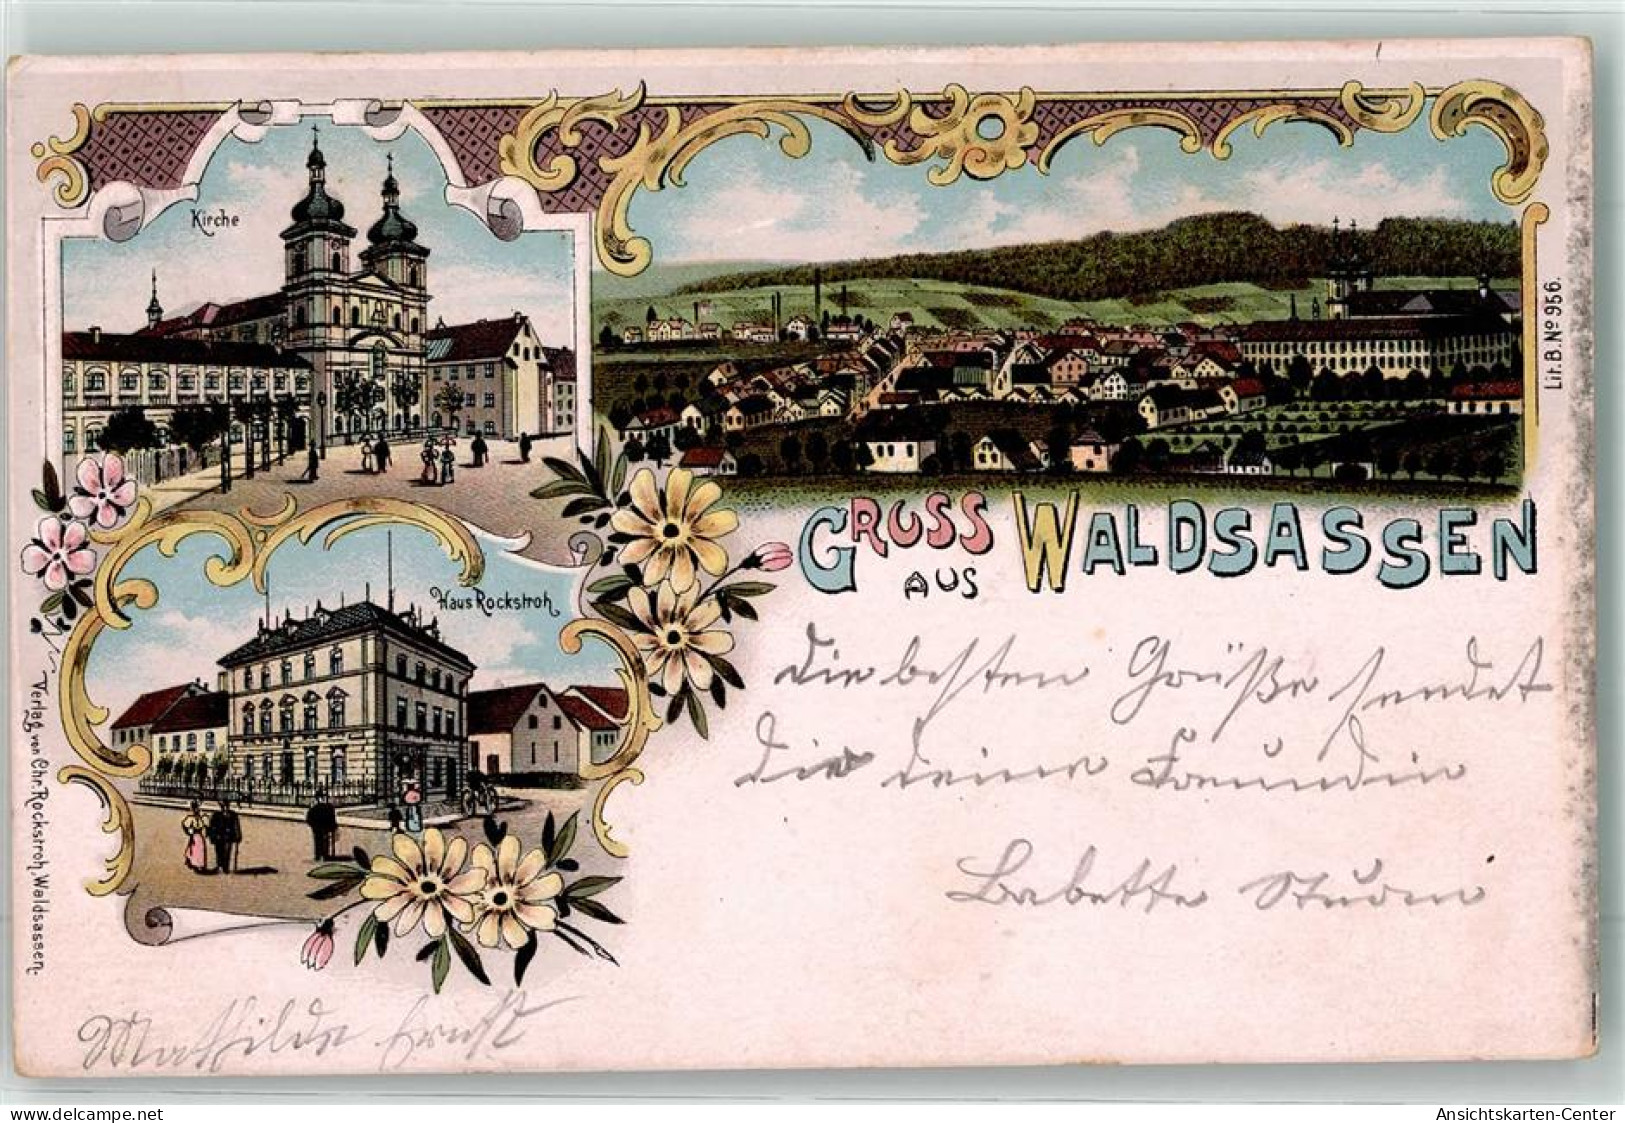 Kirche
Haus Rockstroh
GRUSS AUS WALDSASSEN
Lit. B. No 956.
Verlag von Chr. Rockstroh, Waldsassen.
Die besten Grüße sendet
dir deine Freundin
Babette Sturm
Mathilde Ernst
www.delcampe.net
Ansichtskarten-Center